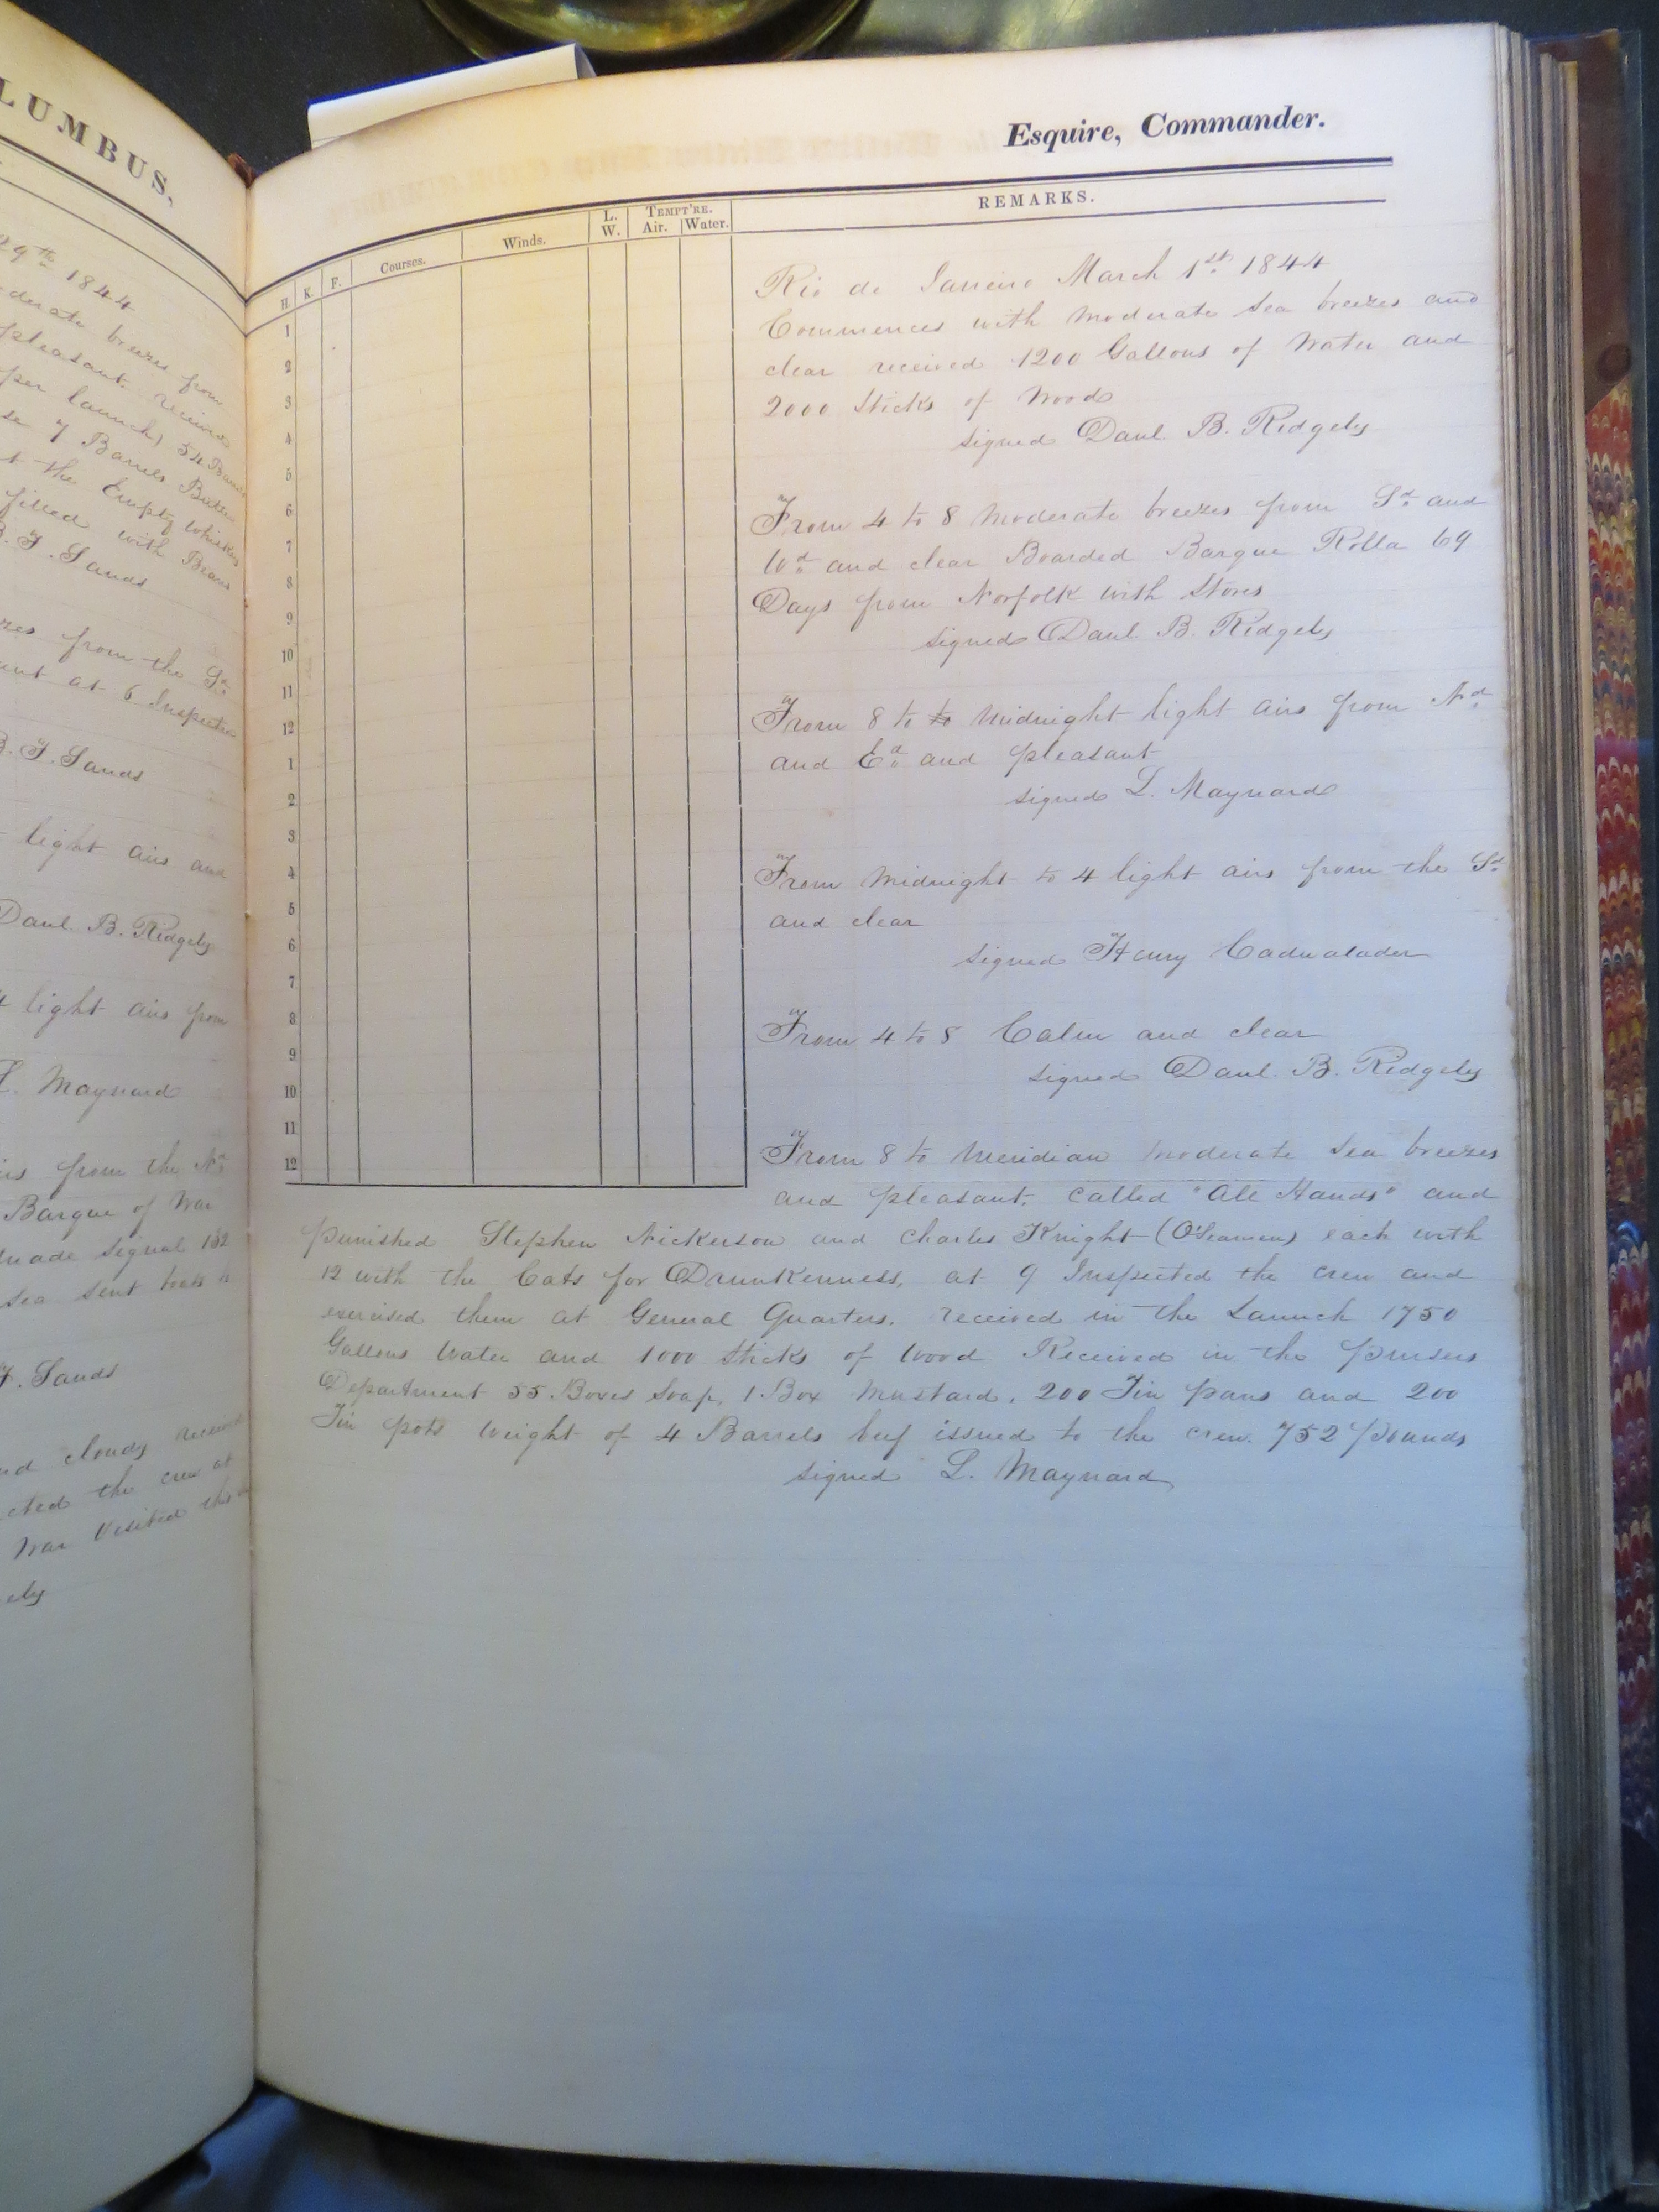 LUMBUS.
29th 1844
derate breezes from
pleasant. received
per launch) 54
se 7 Barrels
t the Empty Whiskey
filled with Beans
B. F. Sands
zes from the Sd.
ant at 6 Inspected
B. F. Sands
light airs and
Danl. B. Ridgely
light airs from
L. Maynard
irs from the Nd.
Barque of War
made signal 132
sea sent
F. Sands
nd cloudy received
cted the crew at
War Visited this
ely
Esquire, Commander.
H. K. F. Courses. Winds. L. W. Tempt're. Air. Water. REMARKS.
1
2
3
4
5
6
7
8
9
10
11
12
1
2
3
4
5
6
7
8
9
10
11
12
Rio de Janeiro March 1st. 1844
Commences with moderate sea breezes and
clear received 1200 Gallons of Water and
2000 Sticks of Wood
signed Danl. B. Ridgely
From 4 to 8 Moderate breezes from Sd. and
Wd. and clear Boarded Barque Rolla 69
Days from Norfolk with Stores
signed Danl. B. Ridgely
From 8 to to Midnight light airs from Nd.
and Ed. and pleasant
signed L. Maynard
From Midnight to 4 light airs from the Sd.
and clear
signed Henry Cadwalader
From 4 to 8 Calm and clear
signed Danl. B. Ridgely
From 8 to Meridian Moderate Sea breezes
and pleasant. called "All Hands" and
punished Stephen Nickerson and Charles Knight (O'Seamen) each with
12 with the Cats for Drunkenness. at 9 Inspected the crew and
exercised them at General Quarters. received in the Launch 1750
Gallons Water and 1000 Sticks of Wood Received in the Pursers
Department 55 Boxes Soap, 1 Box Mustard. 200 Tin pans and 200
Tin pots Weight of 4 Barrels beef issued to the crew. 752 Pounds
signed L. Maynard